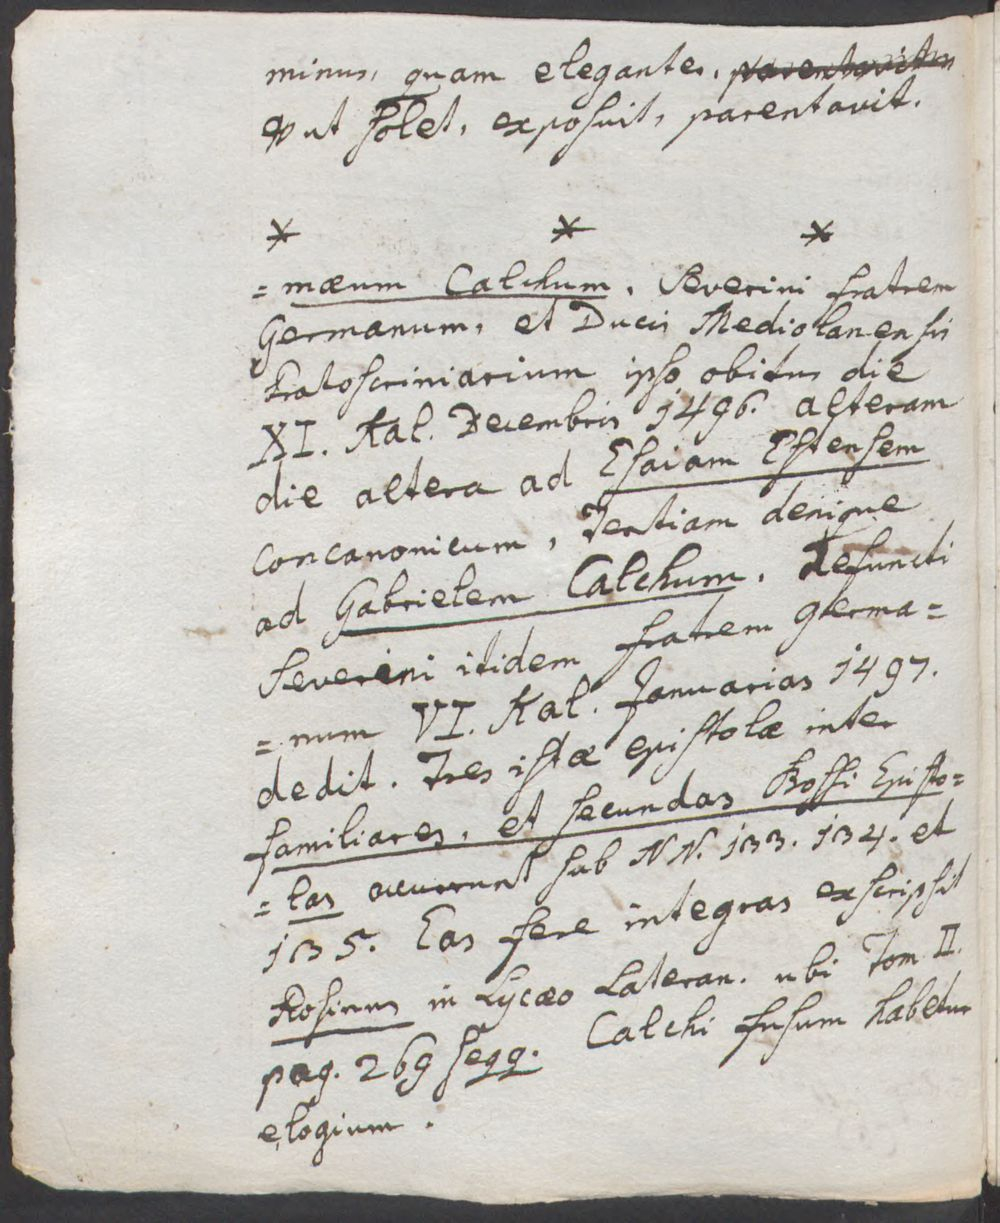 minus, quam elegantes, parentavit
ut solet, exposuit, parentavit.
* * *
=mæum Calchum, Severini fratrem
Germanum, et Ducis Mediolanensis
Protoscriniarium ipso obitus die
XI. Kal. Decembris 1496. alteram
die altera ad Esaiam Estensem
concanonicum, Tertiam denique
ad Gabrielem Calchum, defuncti
Severini itidem fratrem germa=
=num VI. Kal. Januarias 1497.
dedit. Tres istæ epistolæ inter
familiares, et secundas Bossi Episto=
=las occurrunt sub NN. 133. 134. et
135. Eas fere integras exscripsit
Rosinus in Lycæo Lateran. ubi Tom II.
pag. 269 seqq. Calchi fusum habetur
elogium.